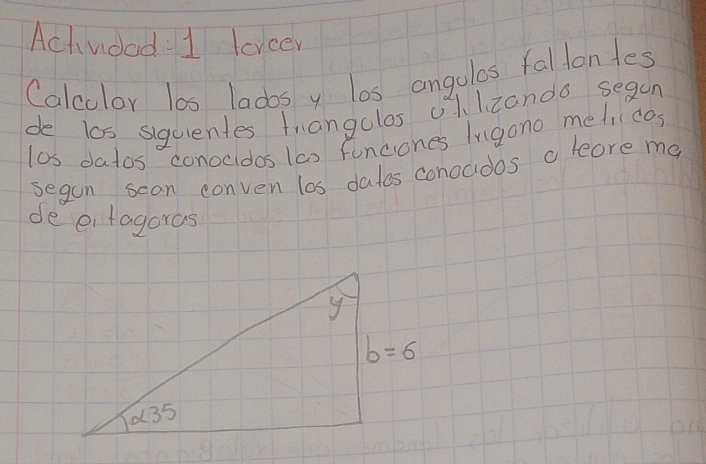 Actividad: 1 tercer
Calcular los lados y los angulos faltantes
de los siguientes triangulos utilizando segun
los datos conocidos las funciones trigonometricas
segun sean conven los datos conocidos o teorema
de pitagoras
y
b=6
α35